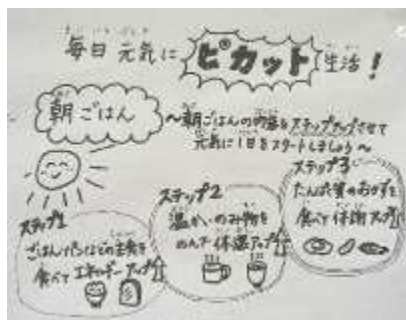 毎日 元気に ピカット 生活!
朝ごはん
~朝ごはんの内容をステップアップさせて
元気に1日をスタートしましょう~
ステップ1
ごはん・パンなどの主食を
食べて エネルギーアップ↑
ステップ2
温かいのみ物を
のんで 体温アップ↑
ステップ3
たんぱく質のおかずを
食べて 代謝アップ↑